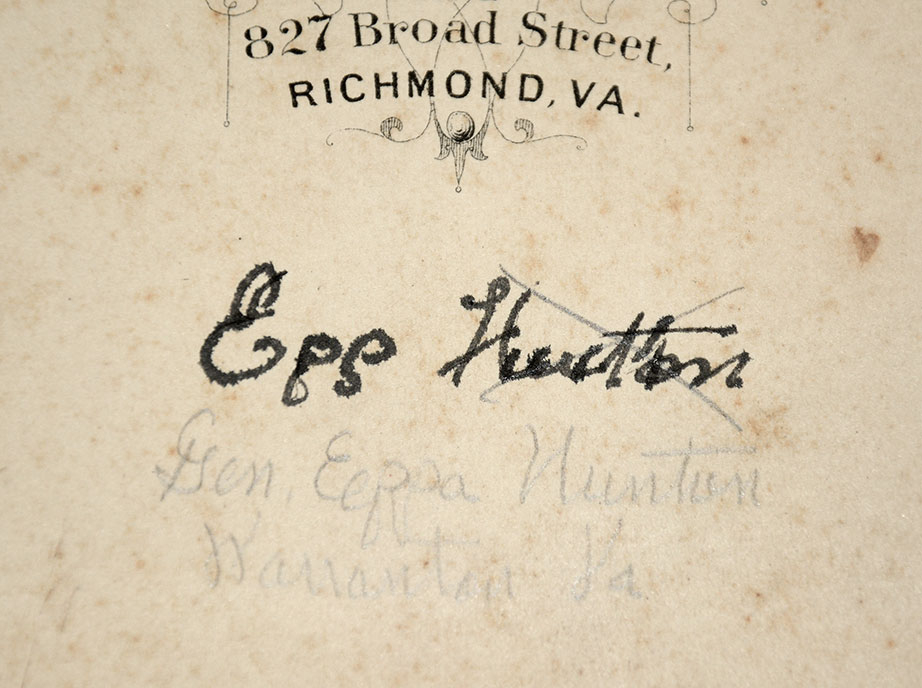 827 Broad Street,
RICHMOND, VA.
Epp Hunton
Gen. Eppa Hunton
Warrenton Va